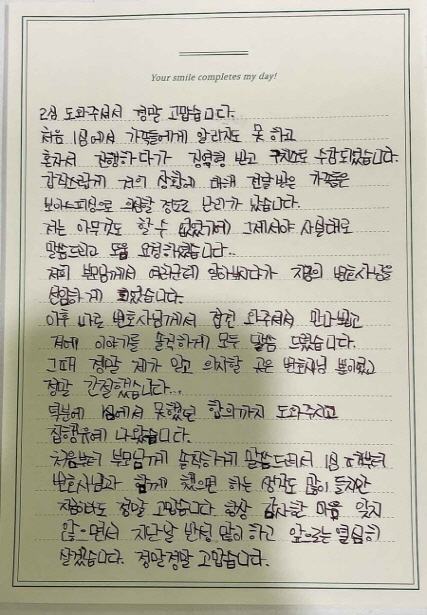 Your smile completes my day!
2심 도와주셔서 정말 고맙습니다.
처음 1심에서 가족들에게 알리지도 못 하고
혼자서 진행하다가 징역형 받고 구치소로 수감되었습니다.
갑작스럽게 저의 상황에 대해 전달 받은 가족들은
보이스피싱으로 의심할 정도로 난리가 났습니다.
저는 아무것도 할 수 없었기에 그제서야 사실대로
말씀드리고 도움 요청하였습니다..
저희 부모님께서 여러군데 알아보시다가 지금의 변호사님을
선임하게 되었습니다.
이후 바로 변호사님께서 접견 와주셔서 만나뵙고
저에 이야기를 솔직하게 모두 말씀 드렸습니다.
그때 정말 제가 믿고 의지할 곳은 변호사님 뿐이였고
정말 간절했습니다..
덕분에 1심에서 못했던 합의까지 도와주시고
집행유예 나왔습니다.
처음부터 부모님께 솔직하게 말씀드려서 1심 때부터
변호사님과 함께 했으면 하는 생각도 많이 들지만
지금이라도 정말 고맙습니다 항상 감사한 마음 잊지
않으면서 지난날 반성 많이 하고 앞으로는 열심히
살겠습니다. 정말정말 고맙습니다.